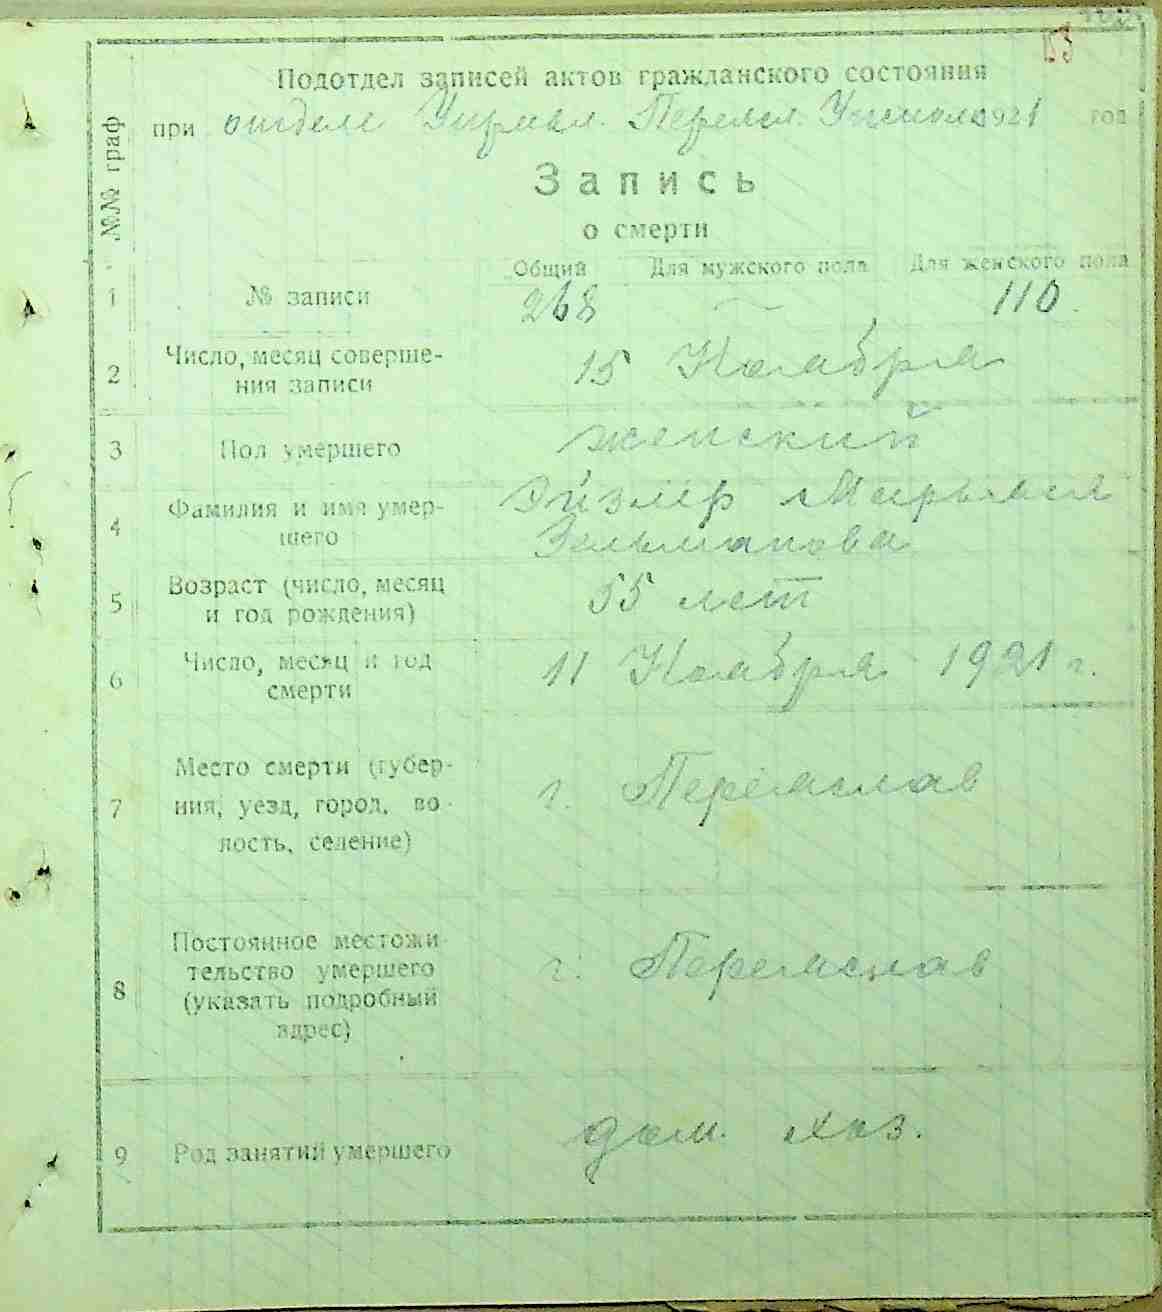 Подотдел записей актов гражданского состояния
при отделе Управл. Переясл. Уисполк 1921 год
Запись
о смерти
№№ граф
Общий Для мужского пола Для женского пола
1 № записи 268 — 110
2 Число, месяц соверше-
ния записи 15 Ноября
3 Пол умершего женский
4 Фамилия и имя умер-
шего Эйзлер Марьяся
Зельманова
5 Возраст (число, месяц
и год рождения) 55 лет
6 Число, месяц и год
смерти 11 Ноября 1921 г.
7 Место смерти (губер-
ния, уезд, город, во-
лость, селение) г. Переяслав
8 Постоянное местожи-
тельство умершего
(указать подробный
адрес) г. Переяслав
9 Род занятий умершего дом. хоз.